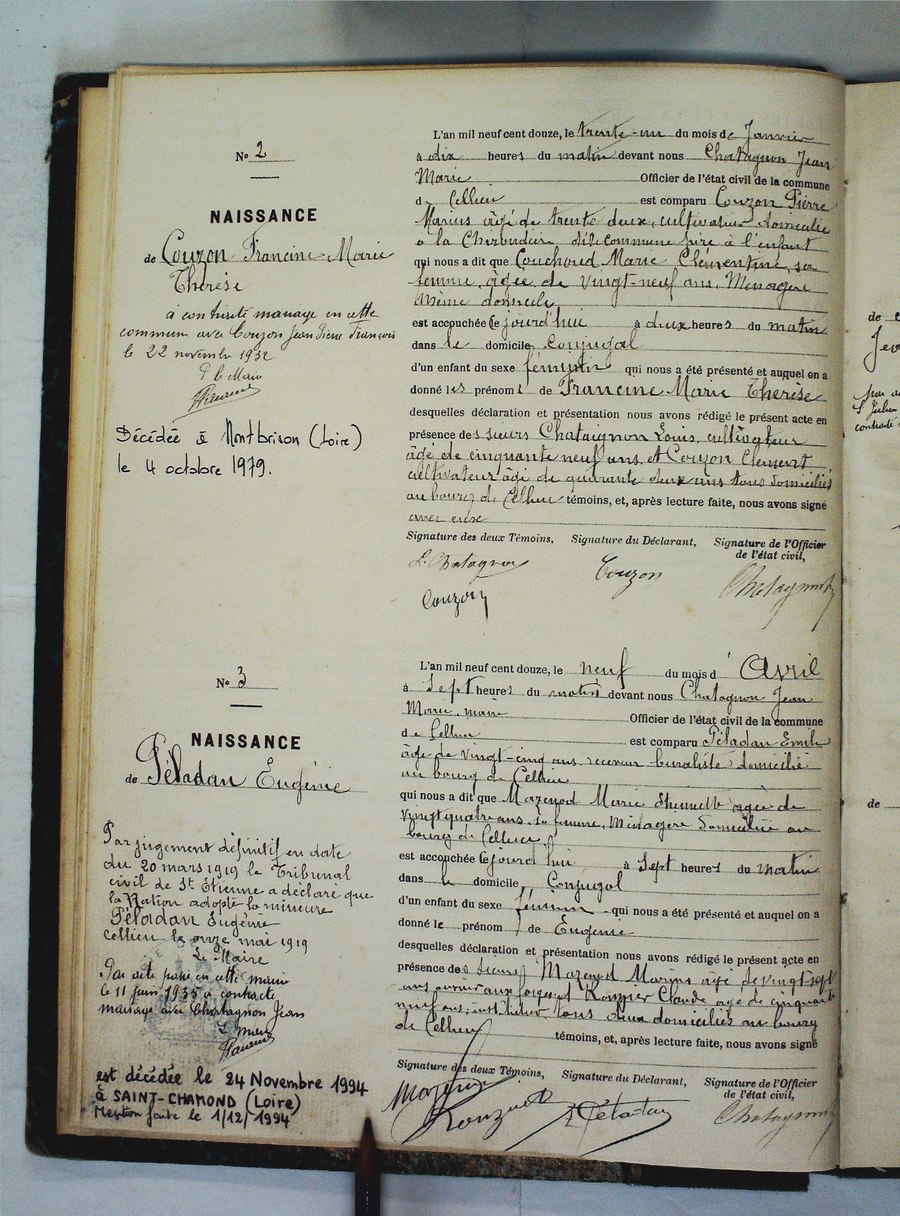 No 2
NAISSANCE
de Couzon Francine-Marie
Thérèse
à contracté mariage en cette
commune avec Couzon Jean Pierre François
le 22 novembre 1932
P le Maire
Décédée à Montbrison (Loire)
le 4 octobre 1979.
L'an mil neuf cent douze, le trente-un du mois de Janvier
à dix heures du matin devant nous Chatagnon Jean
Marie Officier de l'état civil de la commune
d Cellieu est comparu Couzon Pierre
Marius âgé de trente deux, cultivateur domicilié
à la dite commune père à l'enfant
qui nous a dit que Couchoud Marie Clémentine, sa
femme, âgée de vingt-neuf ans, Ménagère
même domicile
est accouchée ce jourd'hui à deux heures du matin
dans le domicile conjugal
d'un enfant du sexe féminin qui nous a été présenté et auquel on a
donné les prénoms de Francine Marie Thérèse
desquelles déclaration et présentation nous avons rédigé le présent acte en
présence des sieurs Chataignon Louis, cultivateur
âgé de cinquante neuf ans, et Couzon Clement,
cultivateur âgé de quarante deux ans tous domiciliés
au bourg de Cellieu témoins, et, après lecture faite, nous avons signé
avec eux
Signature des deux Témoins, Signature du Déclarant, Signature de l'Officier
de l'état civil,
L. Chatagnon Couzon Chatagnon
Couzon
No 3
NAISSANCE
de Péladan Eugénie
Par jugement définitif en date
du 20 mars 1919 le Tribunal
civil de St Etienne a déclaré que
la Nation adopte la mineure
Péladan Eugénie
Cellieu le onze mai 1919
Le Maire
Par acte passé en cette mairie
le 11 juin 1935 a contracté
mariage avec Chatagnon Jean
Le Maire
est décédée le 24 Novembre 1994
à SAINT-CHAMOND (Loire)
Mention faite le 1/12/1994
L'an mil neuf cent douze, le neuf du mois d'Avril
à Sept heures du matin devant nous Chatagnon Jean
Marie, maire Officier de l'état civil de la commune
de Cellieu est comparu Péladan Emile
âgé de vingt-cinq ans receveur buraliste domicilié
au bourg de Cellieu
qui nous a dit que Mazenod Marie agée de
vingt quatre ans, sa femme, Ménagère domiciliée au
bourg de Cellieu
est accouchée ce jourd'hui à Sept heures du matin
dans le domicile Conjugal
d'un enfant du sexe féminin qui nous a été présenté et auquel on a
donné le prénom de Eugénie
desquelles déclaration et présentation nous avons rédigé le présent acte en
présence des sieurs Mazenod Marius âgé de vingt-sept
ans ouvrier aux forges et Claude age de cinquante
neuf ans, instituteur tous deux domiciliés au bourg
de Cellieu témoins, et, après lecture faite, nous avons signé
Signature des deux Témoins, Signature du Déclarant, Signature de l'Officier
de l'état civil,
Mazenod E Péladan Chatagnon
de
de